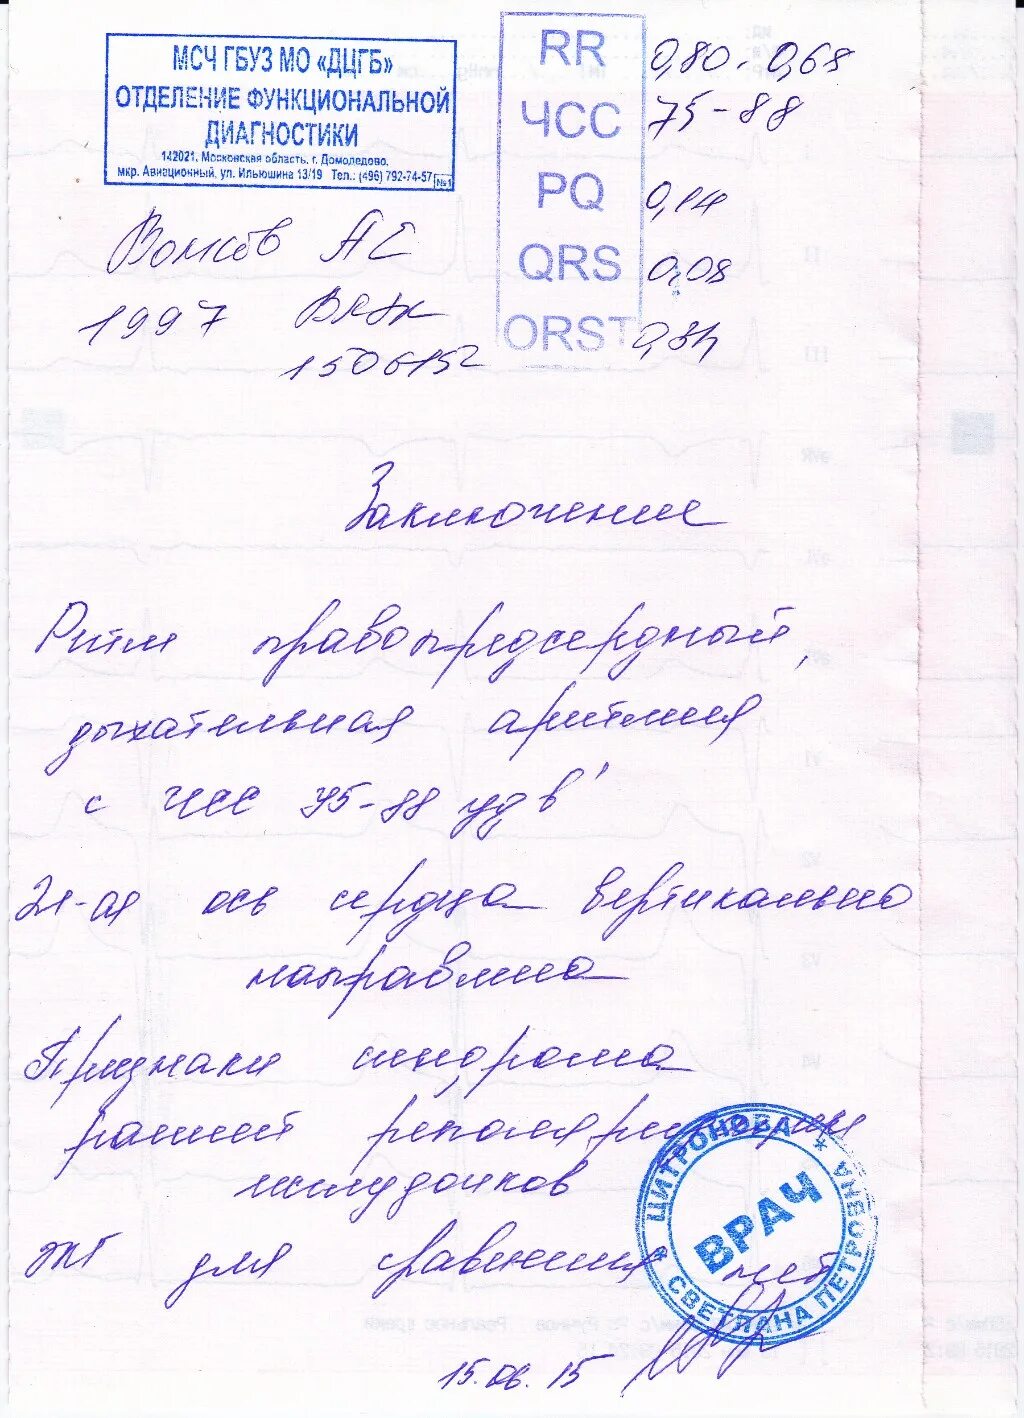 МСЧ ГБУЗ МО «ДЦГБ»
ОТДЕЛЕНИЕ ФУНКЦИОНАЛЬНОЙ
ДИАГНОСТИКИ
142021, Московская область, г. Домодедово,
мкр. Авиационный, ул. Ильюшина 13/19 Тел.: (496) 792-74-57 №1
RR 0,80 - 0,68
ЧСС 75-88
PQ 0,14
QRS 0,08
QRST 0,34
Волков АС
1997
Заключение
Ритм правопредсердный,
дыхательная аритмия
с ЧСС 75-88 уд в'
Эл-ая ось сердца вертикально
направлена
Признаки синдрома
ранней реполяризации
желудочков
ЭКГ для сравнения нет
ЦИТРОНОВА * СВЕТЛАНА ПЕТРОВНА *
ВРАЧ
15.06.15